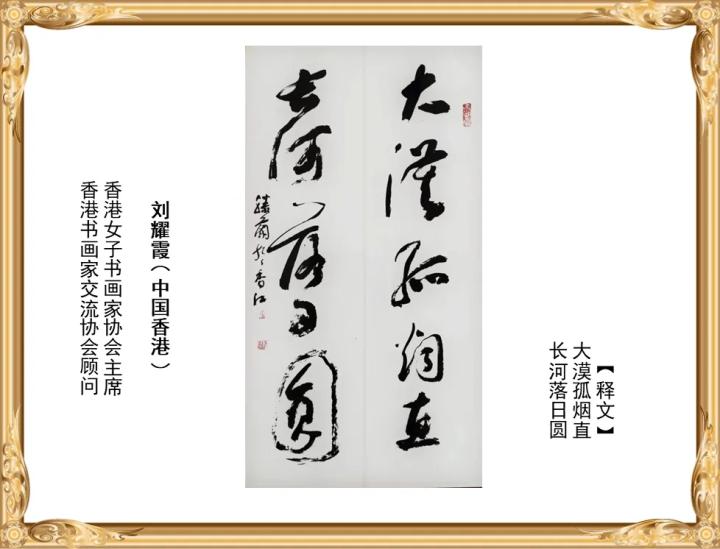 【释文】
大漠孤烟直
长河落日圆
大漠孤烟直
长河落日圆
于香江
刘耀霞（中国香港）
香港女子书画家协会主席
香港书画家交流协会顾问